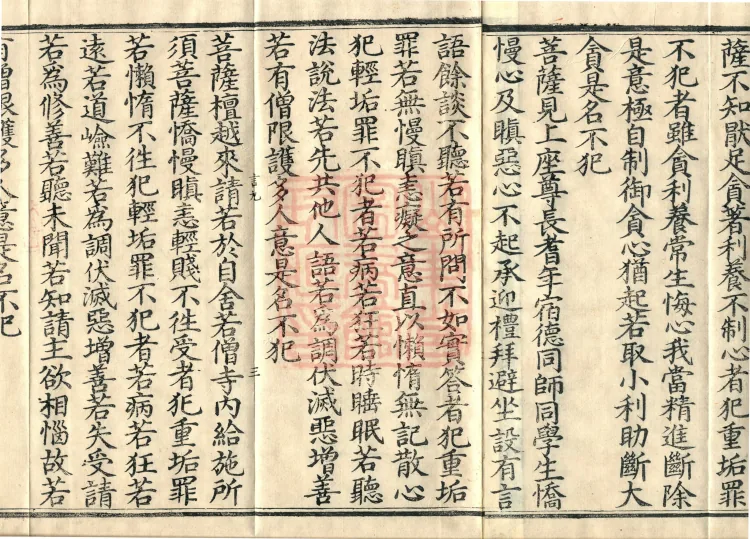 薩不知厭足貪著利養不制心者犯重垢罪
不犯者雖貪利養常生悔心我當精進斷除
是意極自制御貪心猶起若取小利助斷大
貪是名不犯
菩薩見上座尊長耆年宿德同師同學生憍
慢心及瞋惡心不起承迎禮拜避坐設有言
語餘談不聽若有所問不如實答者犯重垢
罪若無慢瞋恚癡之意直以懶惰無記散心
犯輕垢罪不犯者若病若狂若時睡眠若聽
法說法若先共他人語若為調伏滅惡增善
若有僧限護多人意是名不犯
言九
三
菩薩檀越來請若於自舍若僧寺內給施所
須菩薩憍慢瞋恚輕賤不往受者犯重垢罪
若懶惰不往犯輕垢罪不犯者若病若狂若
遠若道嶮難若為調伏滅惡增善若失受請
若為修善若聽未聞若知請主欲相惱故若
有僧限護多人意是名不犯